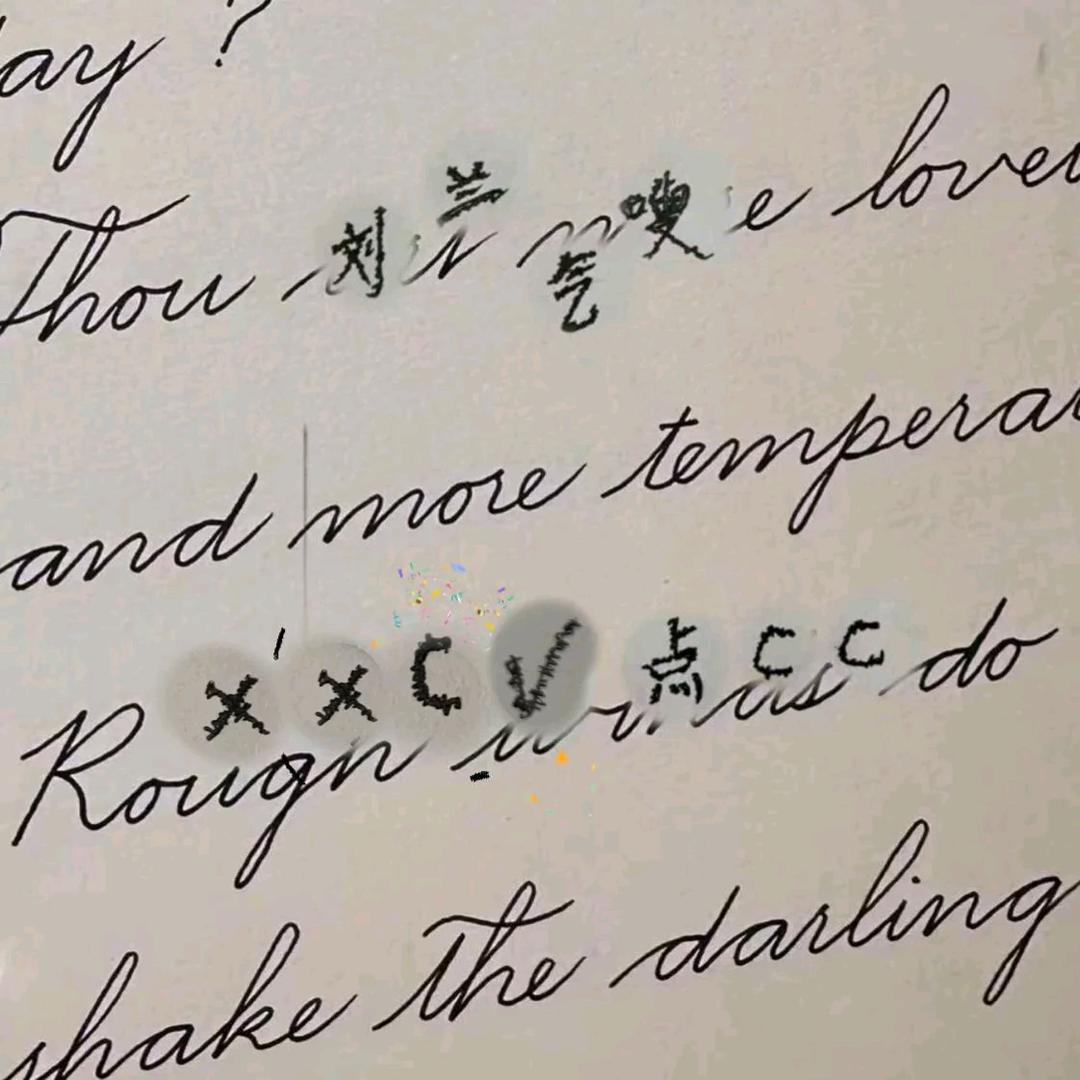 ay?
Thou 刘 兰 气 嗖 e lovel
and more tempera
X X C 点 C C
Rough do
shake the darling